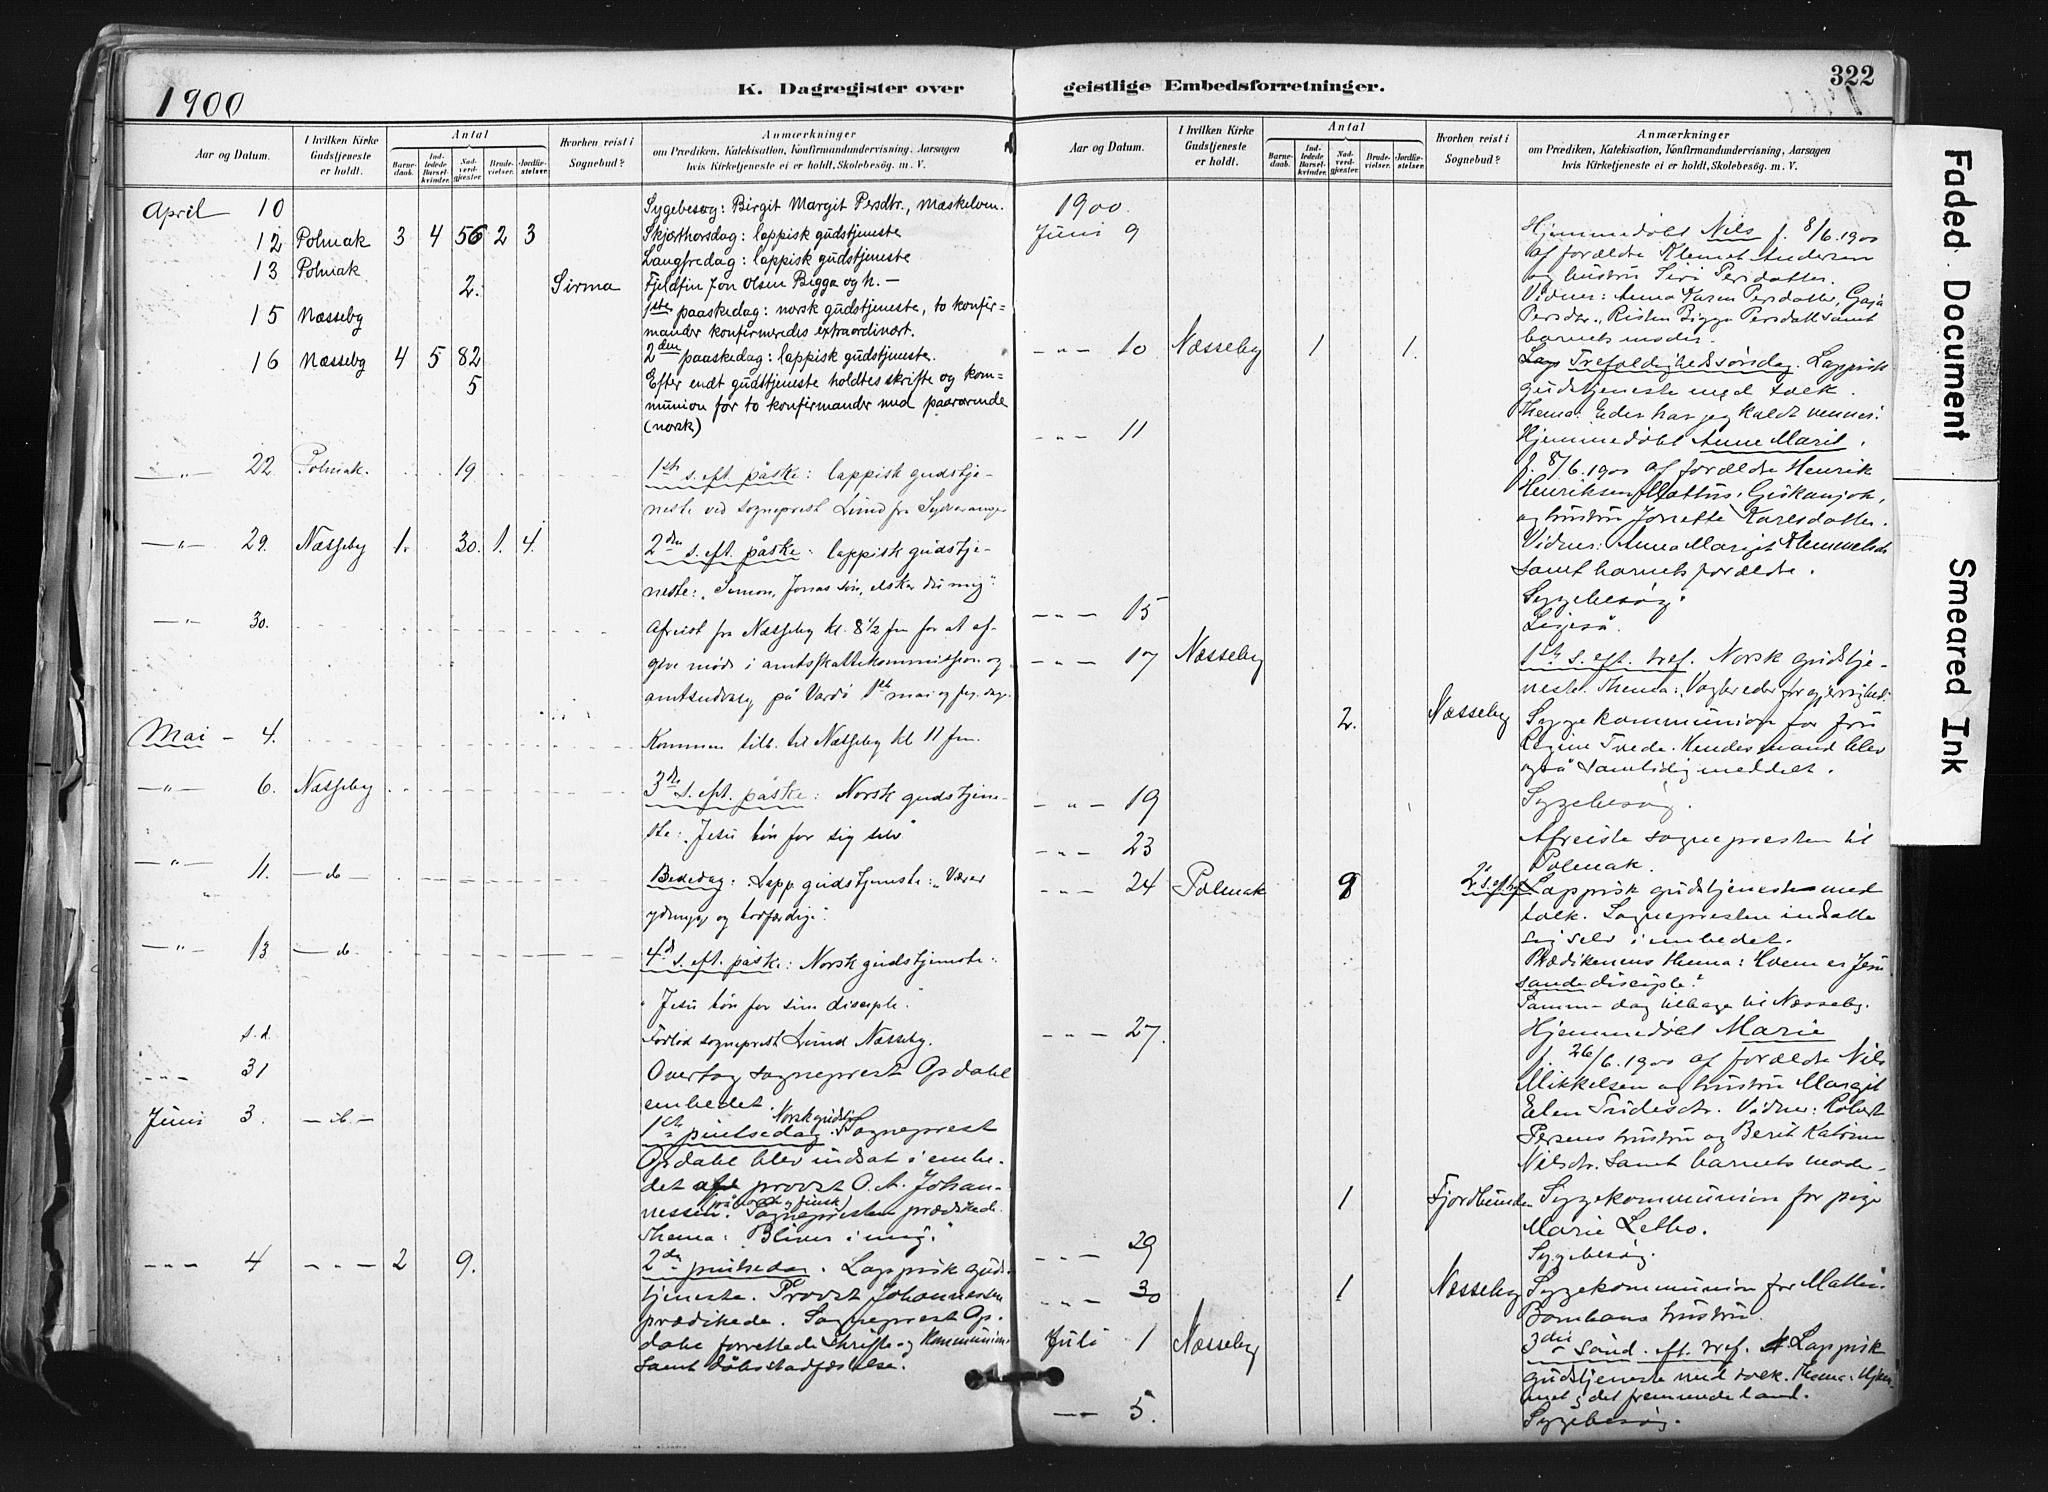 322
K. Dagregister over geistlige Embedsforretninger.
1900
Aar og Datum.
I hvilken Kirke Gudstjeneste er holdt.
Antal
Barnedaab.
Indledede Barselkvinder.
Nadverdgjester.
Brudevielser.
Jordfæstelser.
Hvorhen reist i Sognebud?
Anmærkninger
om Prædiken, Katekisation, Konfirmandundervisning, Aarsagen
hvis Kirketjeneste ei er holdt, Skolebesög. m. V.
April 10 Sygebesøg: Birgit Margit Persdtr., Mæskelven.
12 Polmak 3 4 56 2 3 Skjærthorsdag: lappisk gudstjeneste
13 Polmak Langfredag: lappisk gudstjeneste
2. Sirma Fjeldfin Jon Olsen Bigga og h. —
15 Næsseby 1ste paaskedag: norsk gudstjeneste, to konfir-
mander konfirmeredes extraordinært.
16 Næsseby 4 5 82 2den paaskedag: lappisk gudstjeneste.
5 Efter endt gudstjeneste holdtes skrifte og kom-
munion for to konfirmander med paarørende
(norsk)
—„— 22 Polmak. 19 1ste s. eft. påske: lappisk gudstje-
neste ved sogneprest Lund fra Sydvaranger
—„— 29. Næsseby 1. 30. 1. 4. 2den s. eft. påske: lappisk gudstje-
neste: „Simon, Jonas søn, elsker du mig"
—„— 30. Afreist fra Næsseby kl. 8 1/2 fm for at af-
give møde i amtsskattekommission og
amtsudvalg på Vardö 1ste mai og føg. dage
Mai — 4. Kommen tilb. til Næsseby kl 11 fm.
—„— 6. Næsseby 3die s. eft. påske: Norsk gudstjene-
ste: „Jesu bøn for sig selv"
—„— 11. —do— Bededag: Lapp. gudstjeneste: „Værer
ydmyge og
—„— 13 —do— 4de s. eft. påske: Norsk gudstjeneste:
„Jesu bøn for sine disciple".
s. d. Forlod sogneprest Lund Næsseby.
—„— 31 Overtog sogneprest Opdahl
embedet.
Juni 3. —do— 1ste pintsedag. Norsk gudstj. Sogneprest
Opdahl blev indsat i embe-
det af provst O. A. Johan-
nessen. (på norsk og finsk) Sognepresten prædikede.
Thema: „Bliver i mig."
—„— 4 —„— 2 9. 2den pintsedag. Lappisk guds-
tjeneste. Provst Johannessen
prædikede. Sogneprest Op-
dahl forrettede skrifte og kommunion
samt dåbsstadfæstelse.
Aar og Datum.
I hvilken Kirke Gudstjeneste er holdt.
Antal
Barnedaab.
Indledede Barselkvinder.
Nadverdgjester.
Brudevielser.
Jordfæstelser.
Hvorhen reist i Sognebud?
Anmærkninger
om Prædiken, Katekisation, Konfirmandundervisning, Aarsagen
hvis Kirketjeneste ei er holdt, Skolebesög. m. V.
1900.
Juni 9 Hjemmedøbt Nils f. 8/6.1900
af forældre Klemet Andersen
og hustru Siri Persdatter.
Vidner: Anna Karen Persdatter, Gaja
Persdtr., Risten Bigga Persdatt samt
barnets moder.
—„— 10 Næsseby 1 1. Trefoldighedssøndag. Lappisk
gudstjeneste med tolk.
Thema: Eder har jeg kaldt venner.
—„— 11 Hjemmedøbt Anne Marit.
f. 8/6.1900 af forældre Henrik
Henriksen Mattus,
og hustru Karlsdatter.
Vidner: Anna Margit
samt barnets forældre.
—„— 15 Sygebesøg.
Ligeså.
—„— 17 Næsseby 1ste s. eft. tref. Norsk gudstje-
neste. Thema: Vogter eder for gjerrighed.
2. Næsseby Sygekommunion for fru
Regine Tvede. Hendes mand blev
også samtidig meddelt.
—„— 19 Sygebesøg.
—„— 23 Afreiste sognepresten til
Polmak.
—„— 24 Polmak 9 2. s. eft. tref. Lappisk gudstjeneste med
tolk. Sognepresten indsatte
sig selv i embedet.
Prædikenens thema: Hvem er Jesu
sande disciple?
Samme dag tilbage til Næsseby.
—„— 27. Hjemmedøbt Marie
f. 26/6.1900 af forældre Nils
Mikkelsen og hustru Margit
Elen Vidner: Robert
Persens hustru og Berit Katrine
Nilsdtr. samt barnets moder.
1 Fjordbunden Sygekommunion for pige
Marie Letho.
—„— 29 Sygebesøg.
—„— 30 1 Næsseby Sygekommunion for Mattis
hustru.
Juli 1 Næsseby 3die sønd. eft. tref. Lappisk
gudstjeneste med tolk. Thema: Hjem-
met i det fremmede land.
— 5. Sygebesøg.
Faded Document
Smeared Ink